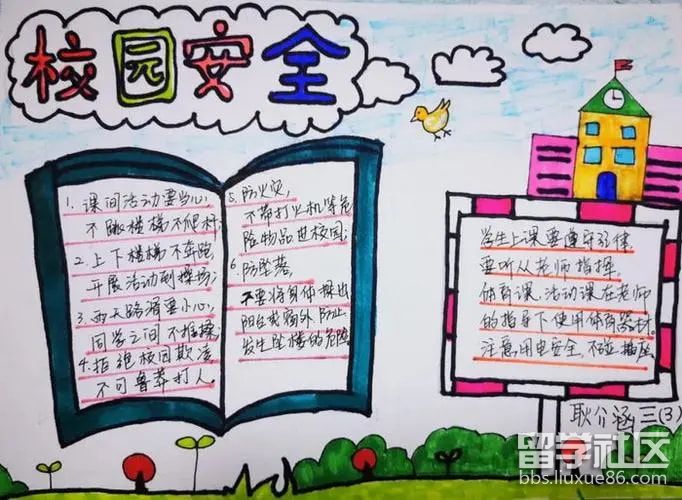 校园安全
1. 课间活动要当心,
楼梯不爬杆;
2. 上下楼梯不奔跑,
开展活动到操场;
3. 雨天路滑要小心,
同学之间不推搡;
4. 拒绝校园欺凌
不可鲁莽打人.
5. 防火灾,
不带打火机等危
险物品进校园;
6. 防坠落,
不要将身体探出
阳台或窗外,防止
发生坠楼的危险
学生上课要遵守纪律
要听从老师指挥。
体育课、活动课在老师
的指导下使用体育器材.
注意用电安全,不碰插座
耿介涵 三(3)
留学社区
bbs.liuxue86.com